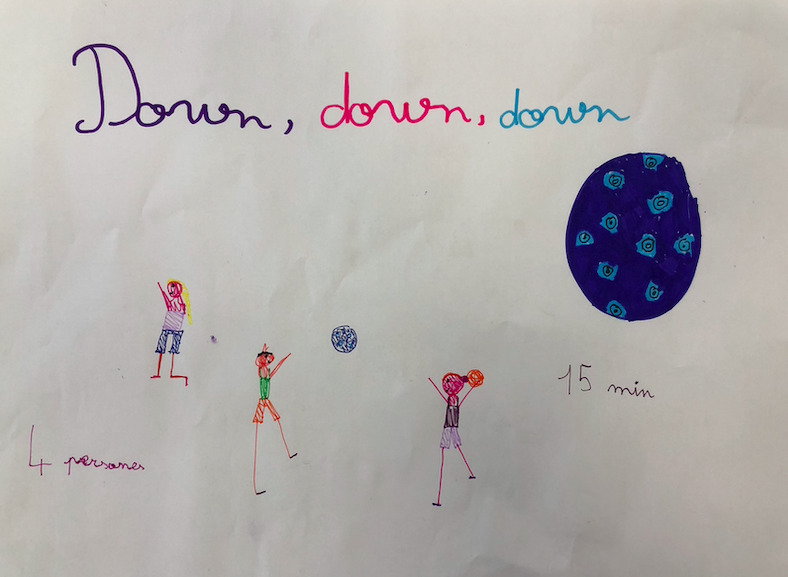 Down, down, down
15 min
4 persones